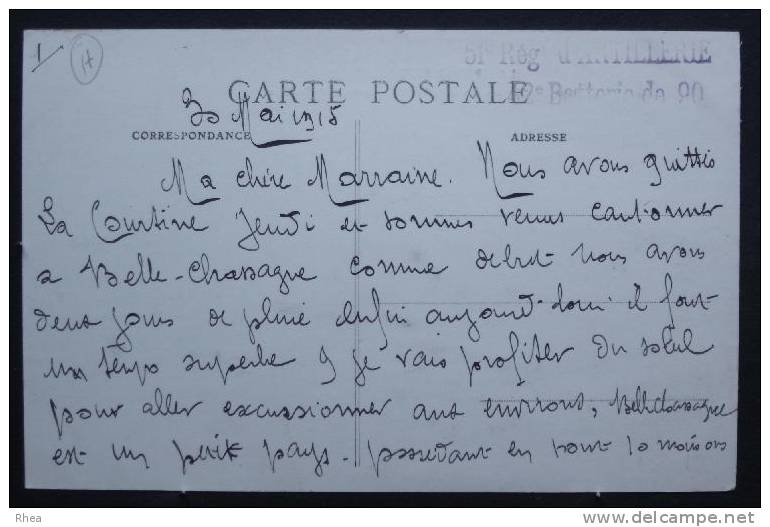 1
51e Rég d'ARTILLERIE
CARTE POSTALE
2e Batterie de 90
30 Mai 1915
CORRESPONDANCE
ADRESSE
Ma chère Marraine. Nous avons quittés
La Courtine Jeudi et sommes venus cantonner
a Belle-Chassagne comme debut nous avons
deux jours de pluie enfin aujourd'hui il fait
un temps superbe je vais profiter du soleil
pour aller excursionner aux environs, Bellechassagne
est un petit pays. possedant en tout 10 maisons
Rhea
www.delcampe.net